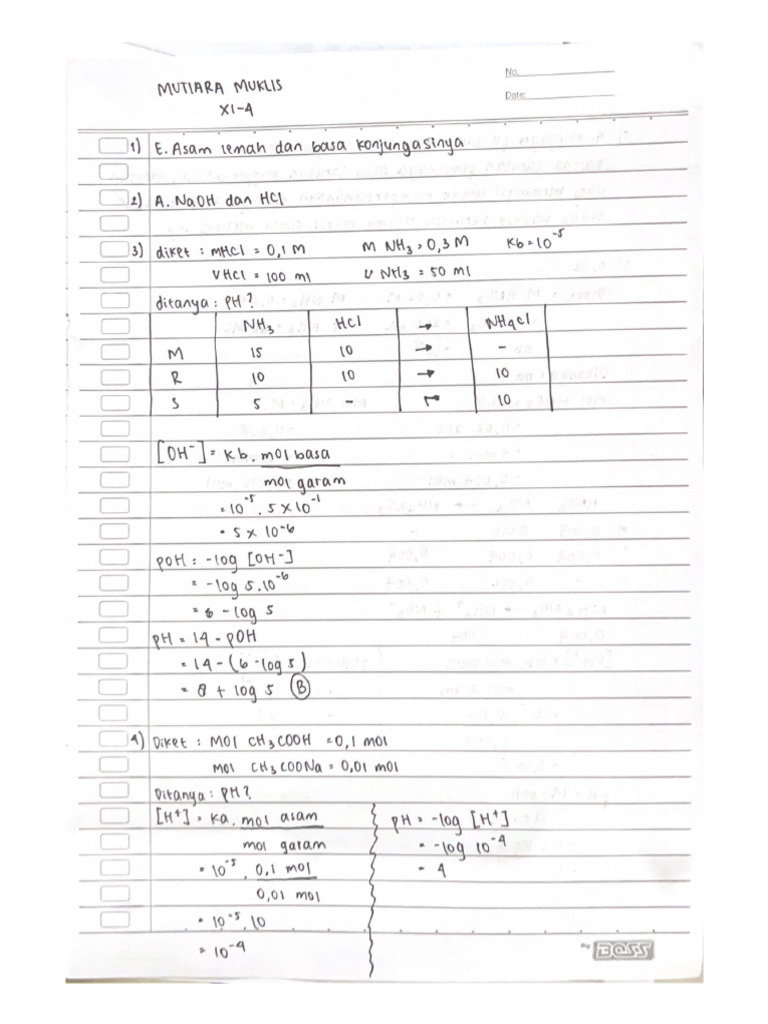 No.
Date:
MUTIARA MUKLIS
XI-4
1) E. Asam lemah dan basa konjungasinya
2) A. NaOH dan HCl
3) diket : mHCl = 0,1 M   M NH₃ = 0,3 M   Kb = 10⁻⁵
V HCl = 100 ml   V NH₃ = 50 ml
ditanya : PH ?
NH₃   HCl   →   NH₄Cl
M   15   10   →   -
R   10   10   →   10
S   5   -   →   10
[OH⁻] = Kb . mol basa
mol garam
= 10⁻⁵ . 5 × 10⁻¹
= 5 × 10⁻⁶
pOH = -log [OH⁻]
= -log 5.10⁻⁶
= 6 - log 5
pH = 14 - pOH
= 14 - (6 - log 5)
= 8 + log 5 (B)
4) Diket : MOl CH₃COOH = 0,1 mol
Mol CH₃COONa = 0,01 mol
Ditanya : PH ?
[H⁺] = Ka . mol asam
mol garam
= 10⁻⁵ . 0,1 mol
0,01 mol
= 10⁻⁵ . 10
= 10⁻⁴
pH = -log [H⁺]
= -log 10⁻⁴
= 4
BOSS